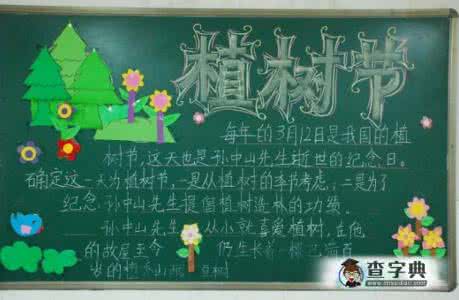 植树节
每年的3月12日是我国的植
树节,这天也是孙中山先生逝世的纪念日。
确定这一天为植树节,一是从植树的季节考虑,二是为了
纪念孙中山先生提倡植树造林的功绩。
孙中山先生从小就喜爱植树,在他
的故居至今仍生长着一棵已满百
岁的
查字典